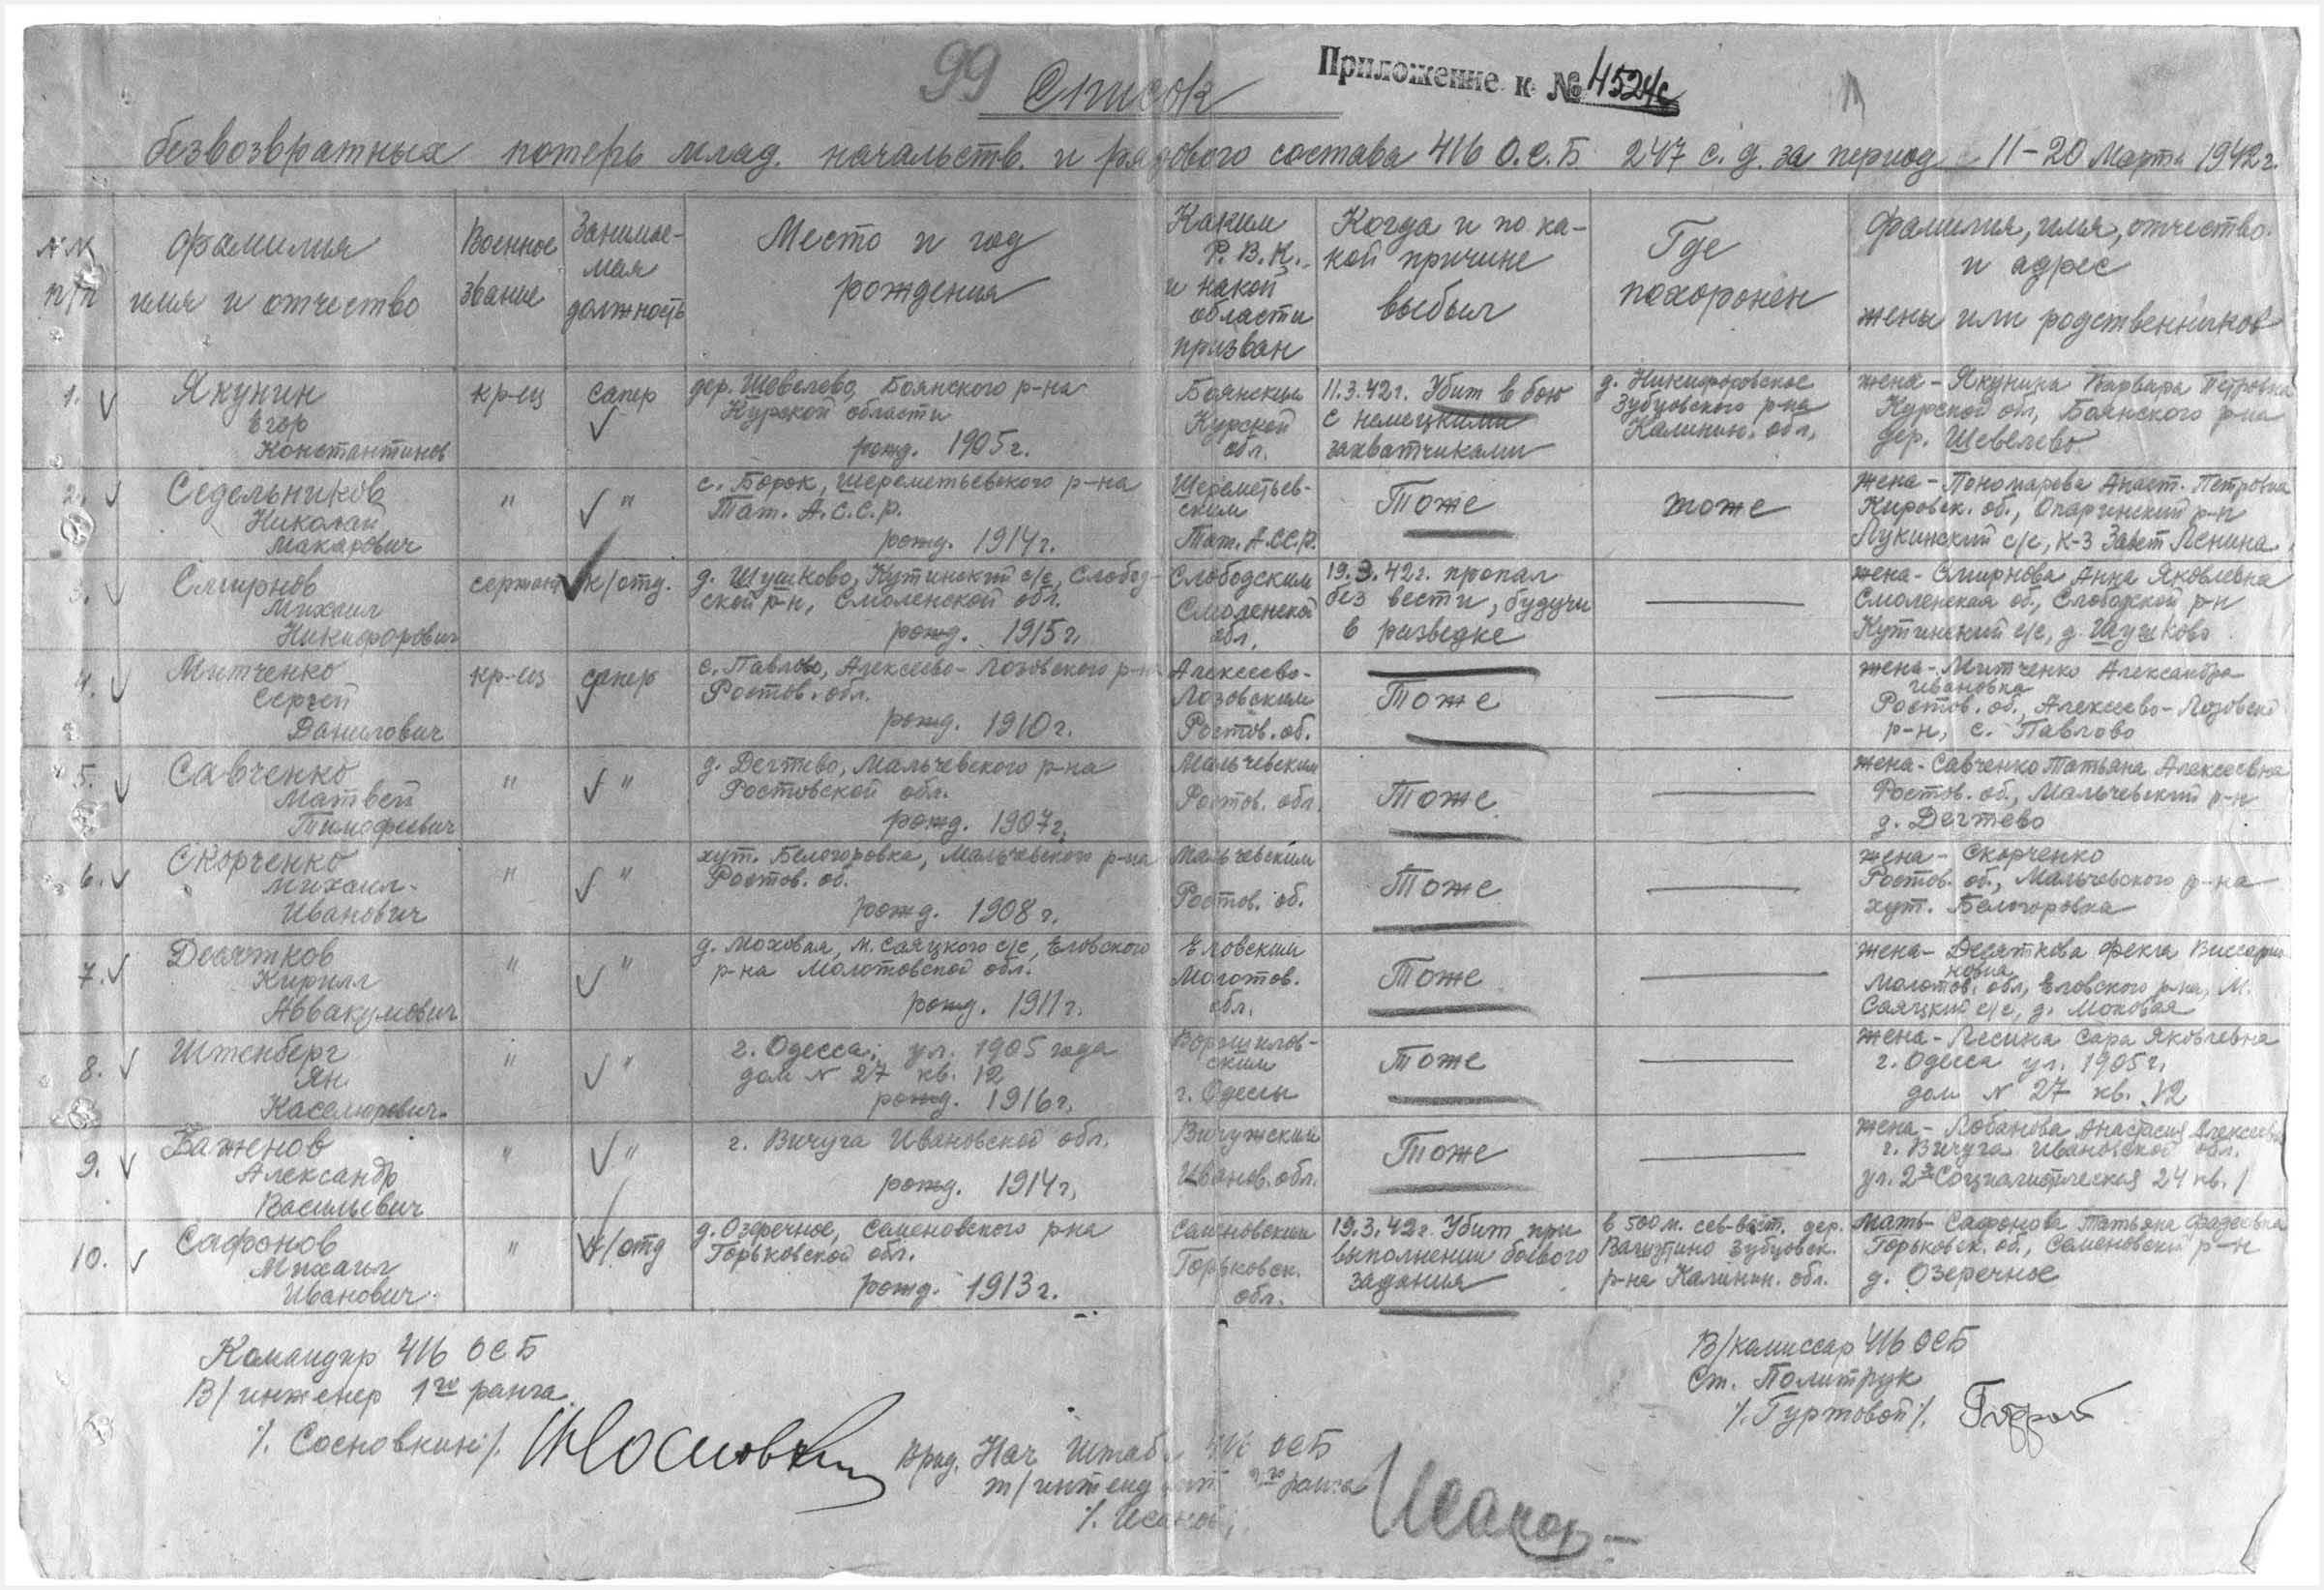 99 Список
Приложение к № 4524с
безвозвратных потерь млад. начальств. и рядового состава 416 О.С.Б 247 с.д. за период 11-20 Марта 1942г.
№№ п/п
Фамилия
имя и отчество
Военное
звание
Занимае-
мая
должность
Место и год
рождения
Каким
Р.В.К.
и какой
области
призван
Когда и по ка-
кой причине
выбыл
Где
похоронен
Фамилия, имя, отчество
и адрес
жены или родственников
1.
Якунин
Егор
Константинов
кр-ец
сапер
дер. Шевелево, Боянского р-на
Курской области
рожд. 1905г.
Боянским
Курской
обл.
11.3.42г. Убит в бою
с немецкими
захватчиками
д. Никифоровское
Зубцовского р-на
Калинин. обл.
жена - Якунина Варвара Петровна
Курской обл, Боянского р-на
дер. Шевелево
2.
Седельников
Николай
Макарович
"
"
с. Борок, Шереметьевского р-на
Тат. А.С.С.Р.
рожд. 1914г.
Шереметьев-
ским
Тат. А.ССР.
Тоже
тоже
жена - Пономарева Анаст. Петровна
Кировск. об., Опаринский р-н
Лукинский с/с, к-з Завет Ленина.
3.
Смирнов
Михаил
Никифорович
сержант
к/отд.
д. Шушково, Кутинский с/с, Слобод-
ской р-н, Смоленской обл.
рожд. 1915г.
Слободским
Смоленской
обл.
19.3.42г. пропал
без вести, будучи
в разведке
жена - Смирнова Анна Яковлевна
Смоленская об., Слободской р-н
Кутинский с/с, д. Шушково
4.
Митченко
Сергей
Данилович
кр-ец
сапер
с. Павлово, Алексеево-Лозовского р-на
Ростов. обл.
рожд. 1910г.
Алексеево-
Лозовским
Ростов. об.
Тоже
жена - Митченко Александра
Ивановна
Ростов. об., Алексеево-Лозовской
р-н, с. Павлово
5.
Савченко
Матвей
Тимофеевич
"
"
д. Дегтево, Мальчевского р-на
Ростовской обл.
рожд. 1907г.
Мальчевским
Ростов. обл.
Тоже
жена - Савченко Татьяна Алексеевна
Ростов. об., Мальчевский р-н
д. Дегтево
6.
Скорченко
Михаил
Иванович
"
"
хут. Белогоровка, Мальчевского р-на
Ростов. об.
рожд. 1908г.
Мальчевским
Ростов. об.
Тоже
жена - Скорченко
Ростов. об., Мальчевского р-на
хут. Белогоровка
7.
Десятков
Кирилл
Аввакумович
"
"
д. Моховая, М. Саяцкого с/с, Еловского
р-на Молотовской обл.
рожд. 1911г.
Еловским
Молотов.
обл.
Тоже
жена - Десяткова Фекла Виссарио-
новна
Молотов. обл, Еловского р-на, М.
Саяцкий с/с, д. Моховая
8.
Штенберг
Ян
Каселюрович
"
"
г. Одесса, ул. 1905 года
дом № 27 кв. 12
рожд. 1916г.
Ворошилов-
ским
г. Одессы
Тоже
жена - Лесина Сара Яковлевна
г. Одесса ул. 1905г.
дом № 27 кв. 12
9.
Баженов
Александр
Васильевич
"
"
г. Вичуга Ивановской обл.
рожд. 1914г.
Вичужским
Иванов. обл.
Тоже
жена - Лобанова Анастасия Алексеевна
г. Вичуга Ивановской обл.
ул. 2я Социалистическая 24 кв. 1
10.
Сафонов
Михаил
Иванович
"
к/отд
д. Озеречное, Семеновского р-на
Горьковской обл.
рожд. 1913г.
Семеновским
Горьковск.
обл.
19.3.42г. Убит при
выполнении боевого
задания
в 500 м. сев-вост. дер.
Зубцовск.
р-на Калинин. обл.
Мать - Сафонова Татьяна Фадеевна
Горьковск. об., Семеновский р-н
д. Озеречное
Командир 416 ОСБ
В/инженер 1го ранга
/. Сосновкин /.
Врид. Нач Штаба 416 ОСБ
т/интендант ранга
/. Исаков /
В/комиссар 416 ОСБ
Ст. Политрук
/. Гуртовой /.